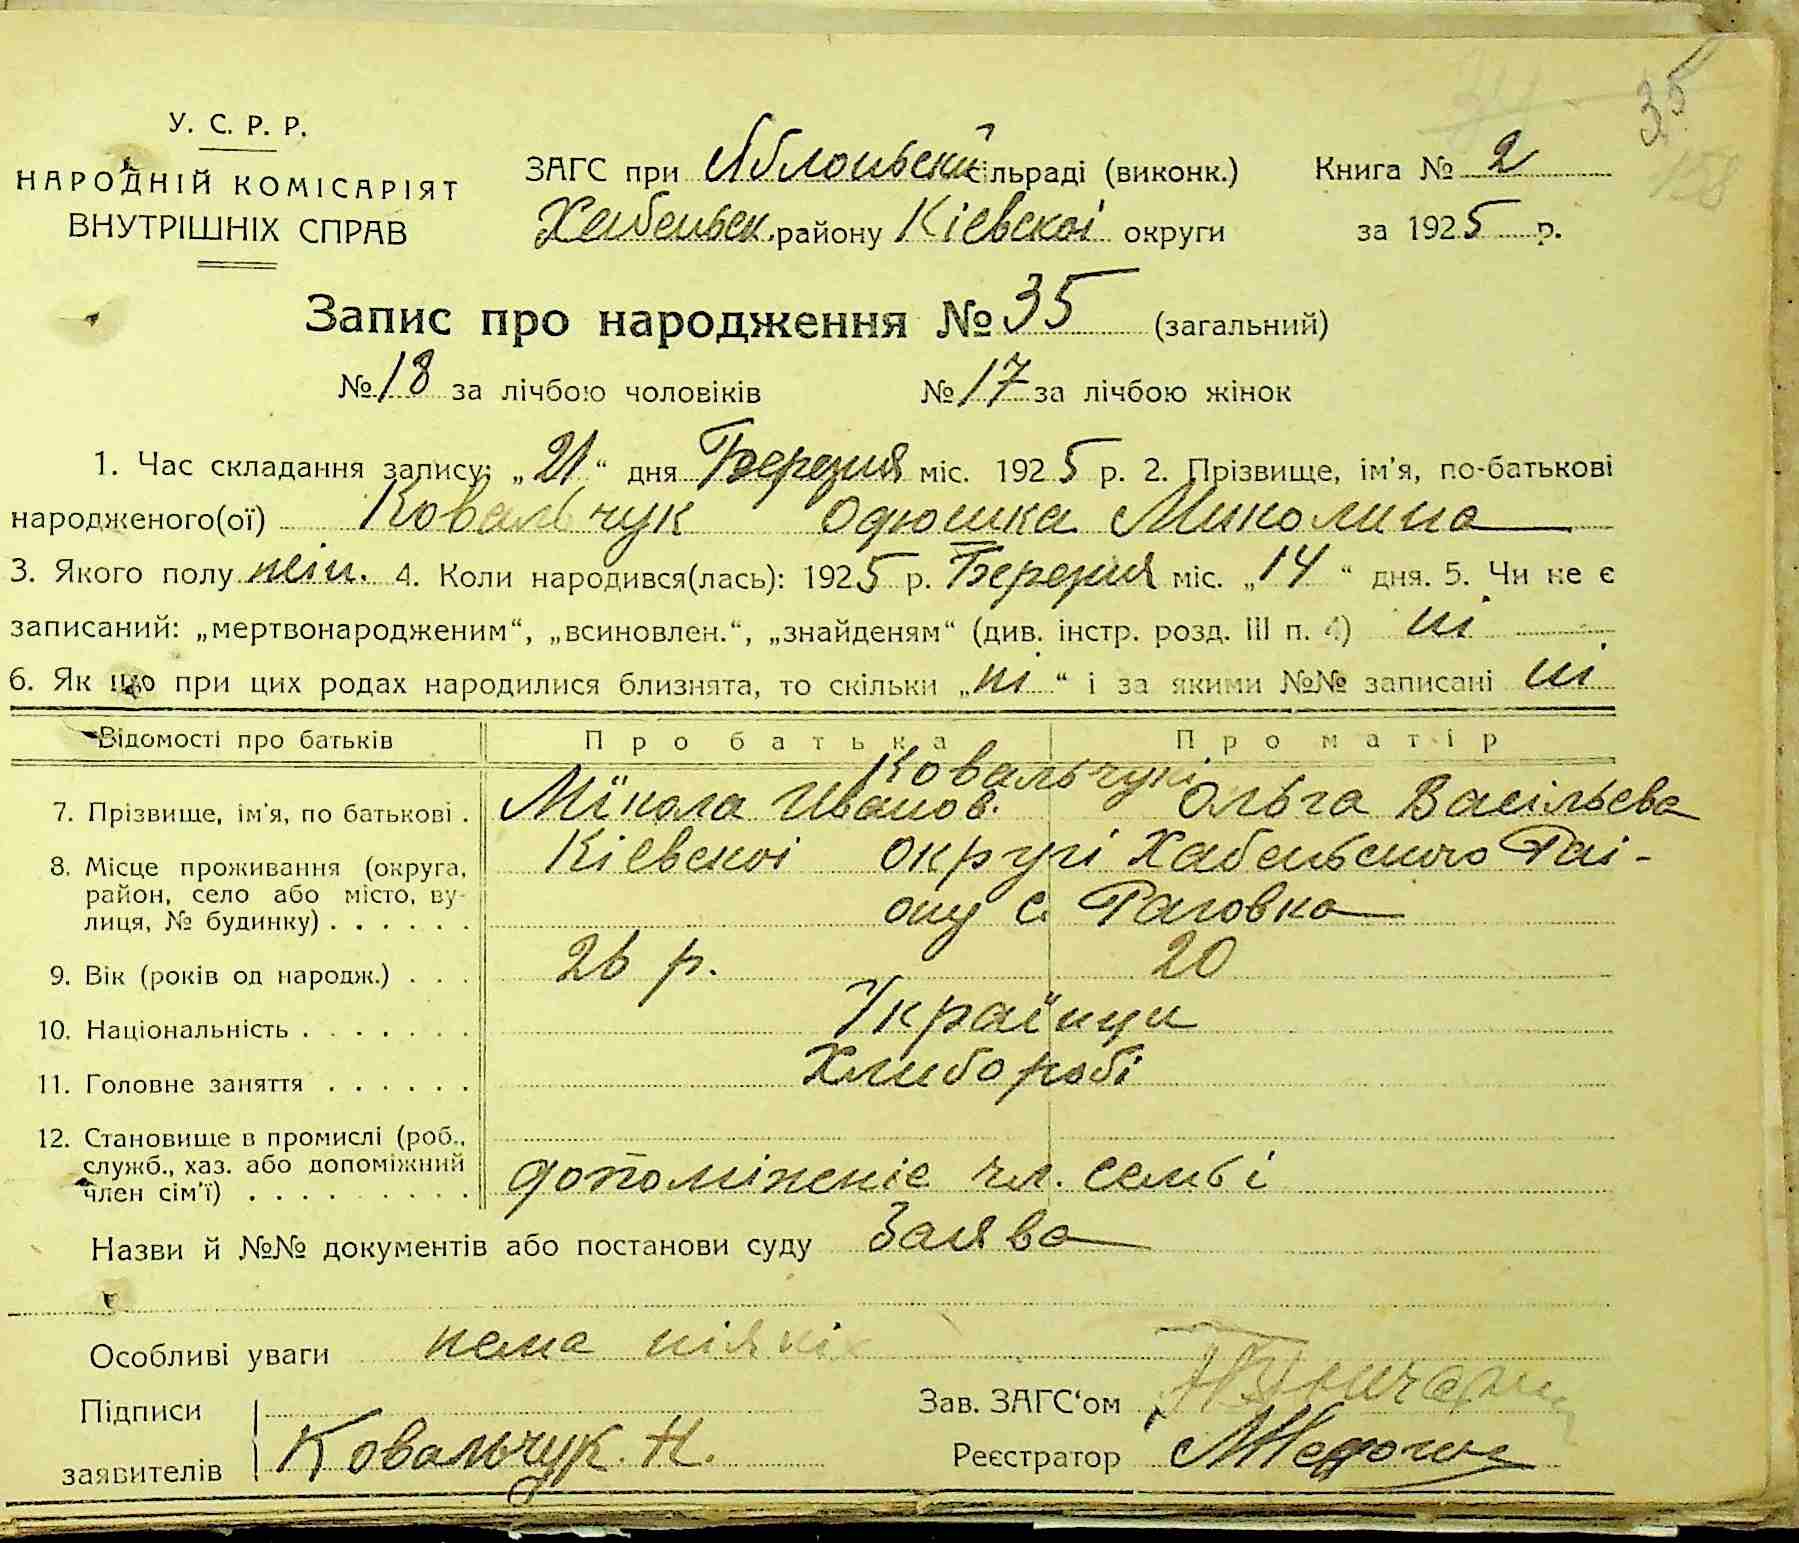 35
158
У. С. Р. Р.
НАРОДНІЙ КОМІСАРІЯТ
ВНУТРІШНІХ СПРАВ
ЗАГС при Яблоньскій сільраді (виконк.)
Хабеньск. району Кіевскоі округи
Книга № 2
за 1925 р.
Запис про народження № 35 (загальний)
№ 18 за лічбою чоловіків № 17 за лічбою жінок
1. Час складання запису: „21“ дня Березня міс. 1925 р. 2. Прізвище, ім'я, по-батькові
народженого(ої) Ковальчук Одюшка Миколина
3. Якого полу жін. 4. Коли народився(лась): 1925 р. Березня міс. „14“ дня. 5. Чи не є
записаний: „мертвонародженим“, „всиновлен.“, „знайденям“ (див. інстр. розд. III п. 4) ні
6. Як що при цих родах народилися близнята, то скільки „ні“ і за якими №№ записані ні
Відомості про батьків Про батька Про матір
Ковальчукі
7. Прізвище, ім'я, по батькові . Мікола Иванов. Ольга Васільева
8. Місце проживання (округа, район, село або місто, вулиця, № будинку) . . . . . . Кіевскоі округі Хабеньского Раі-
ону с. Раговка
9. Вік (років од народж.) . . . 26 р. 20
10. Національність . . . . . . . Українци
11. Головне заняття . . . . . . Хлиборобі
12. Становище в промислі (роб.,
служб., хаз. або допоміжний
член сім'ї) . . . . . . . . . допоміжніе чл. семьі
Назви й №№ документів або постанови суду Заява
Особливі уваги нема ніякіх
Підписи
заявителів Ковальчук. Н.
Зав. ЗАГС'ом
Реєстратор